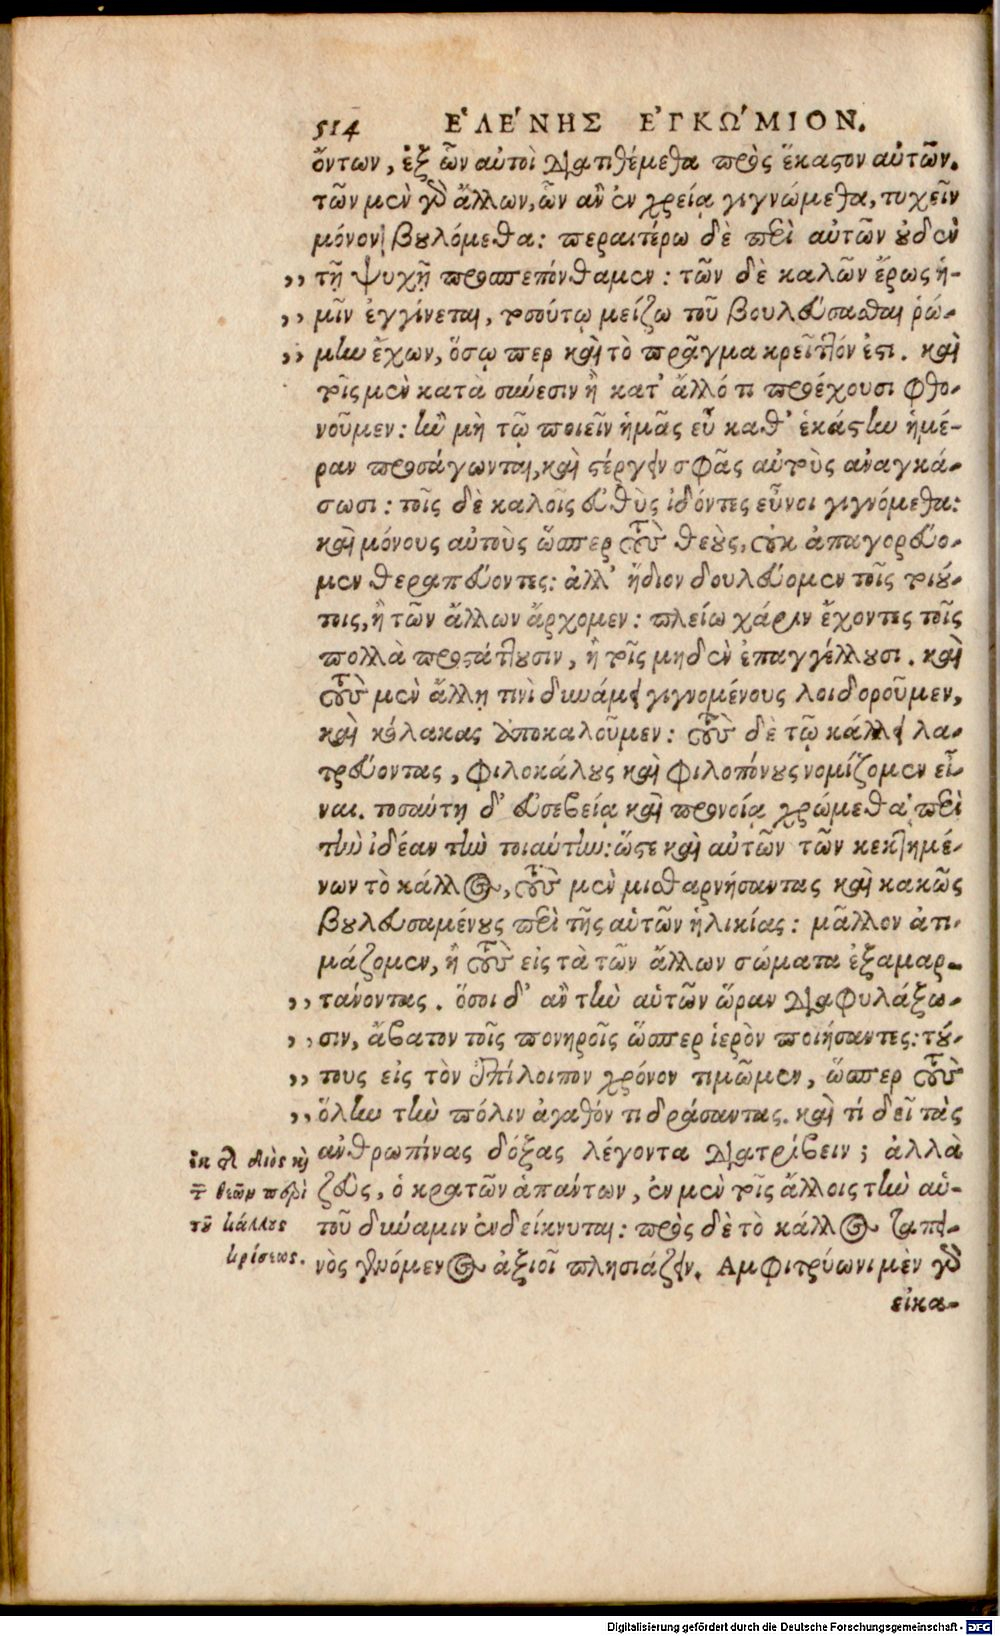 514 ἙΛΈΝΗΣ ἘΓΚΏΜΙΟΝ.
ὄντων, ἐξ ὧν αὐτοὶ διατιθέμεθα πρὸς ἕκαστον αὐτῶν.
τῶν μὲν γὸ ἄλλων, ὧν ἂν ἐν χρείᾳ γιγνώμεθα, τυχεῖν
μόνον βουλόμεθα: περαιτέρω δὲ περὶ αὐτῶν οὐδὲν
,, τῇ ψυχῇ προσπεπόνθαμεν: τῶν δὲ καλῶν ἔρως ἡ-
,, μῖν ἐγγίνεται, τοσούτῳ μείζω τοῦ βουλεύσασθαι ῥώ-
,, μην ἔχων, ὅσῳ περ καὶ τὸ πρᾶγμα κρεῖττόν ἐστι. καὶ
τοῖς μὲν κατὰ σύνεσιν ἢ κατ' ἄλλό τι προέχουσι φθο-
νοῦμεν: ἢν μὴ τῷ ποιεῖν ἡμᾶς εὖ καθ' ἑκάστην ἡμέ-
ραν προσάγωνται, καὶ στέργειν σφᾶς αὐτοὺς ἀναγκά-
σωσι: τοῖς δὲ καλοῖς εὐθὺς ἰδόντες εὖνοι γιγνόμεθα:
καὶ μόνους αὐτοὺς ὥσπερ τοὺς θεοὺς, οὐκ ἀπαγορεύο-
μεν θεραπεύοντες: ἀλλ' ἥδιον δουλεύομεν τοῖς τοιού-
τοις, ἢ τῶν ἄλλων ἄρχομεν: πλείω χάριν ἔχοντες τοῖς
πολλὰ προστάττουσιν, ἢ τοῖς μηδὲν ἐπαγγέλλουσι. καὶ
τοὺς μὲν ἄλλῃ τινὶ δυνάμει γιγνομένους λοιδοροῦμεν,
καὶ κόλακας ἀποκαλοῦμεν: τοὺς δὲ τῷ κάλλει λα-
τρεύοντας, φιλοκάλους καὶ φιλοπόνους νομίζομεν εἶ-
ναι. τοσαύτῃ δ' εὐσεβείᾳ καὶ προνοίᾳ χρώμεθα περὶ
τὴν ἰδέαν τὴν τοιαύτην: ὥστε καὶ αὐτῶν τῶν κεκτημέ-
νων τὸ κάλλος, τοὺς μὲν μισθαρνήσαντας καὶ κακῶς
βουλευσαμένους περὶ τῆς αὑτῶν ἡλικίας: μᾶλλον ἀτι-
μάζομεν, ἢ τοὺς εἰς τὰ τῶν ἄλλων σώματα ἐξαμαρ-
,, τάνοντας. ὅσοι δ' ἂν τὴν αὑτῶν ὥραν διαφυλάξω-
,, σιν, ἄβατον τοῖς πονηροῖς ὥσπερ ἱερὸν ποιήσαντες: τού-
,, τους εἰς τὸν ἐπίλοιπον χρόνον τιμῶμεν, ὥσπερ τοὺς
,, ὅλην τὴν πόλιν ἀγαθόν τι δράσαντας. καὶ τί δεῖ τὰς
ἀνθρωπίνας δόξας λέγοντα διατρίβειν; ἀλλὰ
ζεὺς, ὁ κρατῶν ἁπάντων, ἐν μὲν τοῖς ἄλλοις τὴν αὑ-
τοῦ δύναμιν ἐνδείκνυται: πρὸς δὲ τὸ κάλλος ταπει-
νὸς γενόμενος ἀξιοῖ πλησιάζειν. Αμφιτρύωνι μὲν γὸ
εἰκα-
ἐκ τ διὸς κỳ
τ θεῶν περὶ
τοῦ κάλλους
κρίσεως.
Digitalisierung gefördert durch die Deutsche Forschungsgemeinschaft - DFG